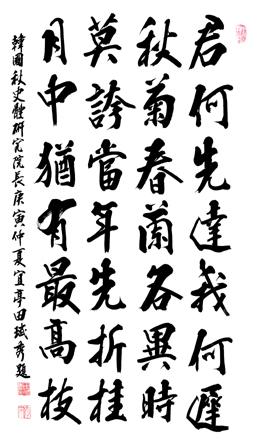 君何先達我何遲
秋菊春蘭各異時
莫誇當年先折桂
月中猶有最高枝
韓國秋史體硏究院長庚寅仲夏宜亭田珹秀題